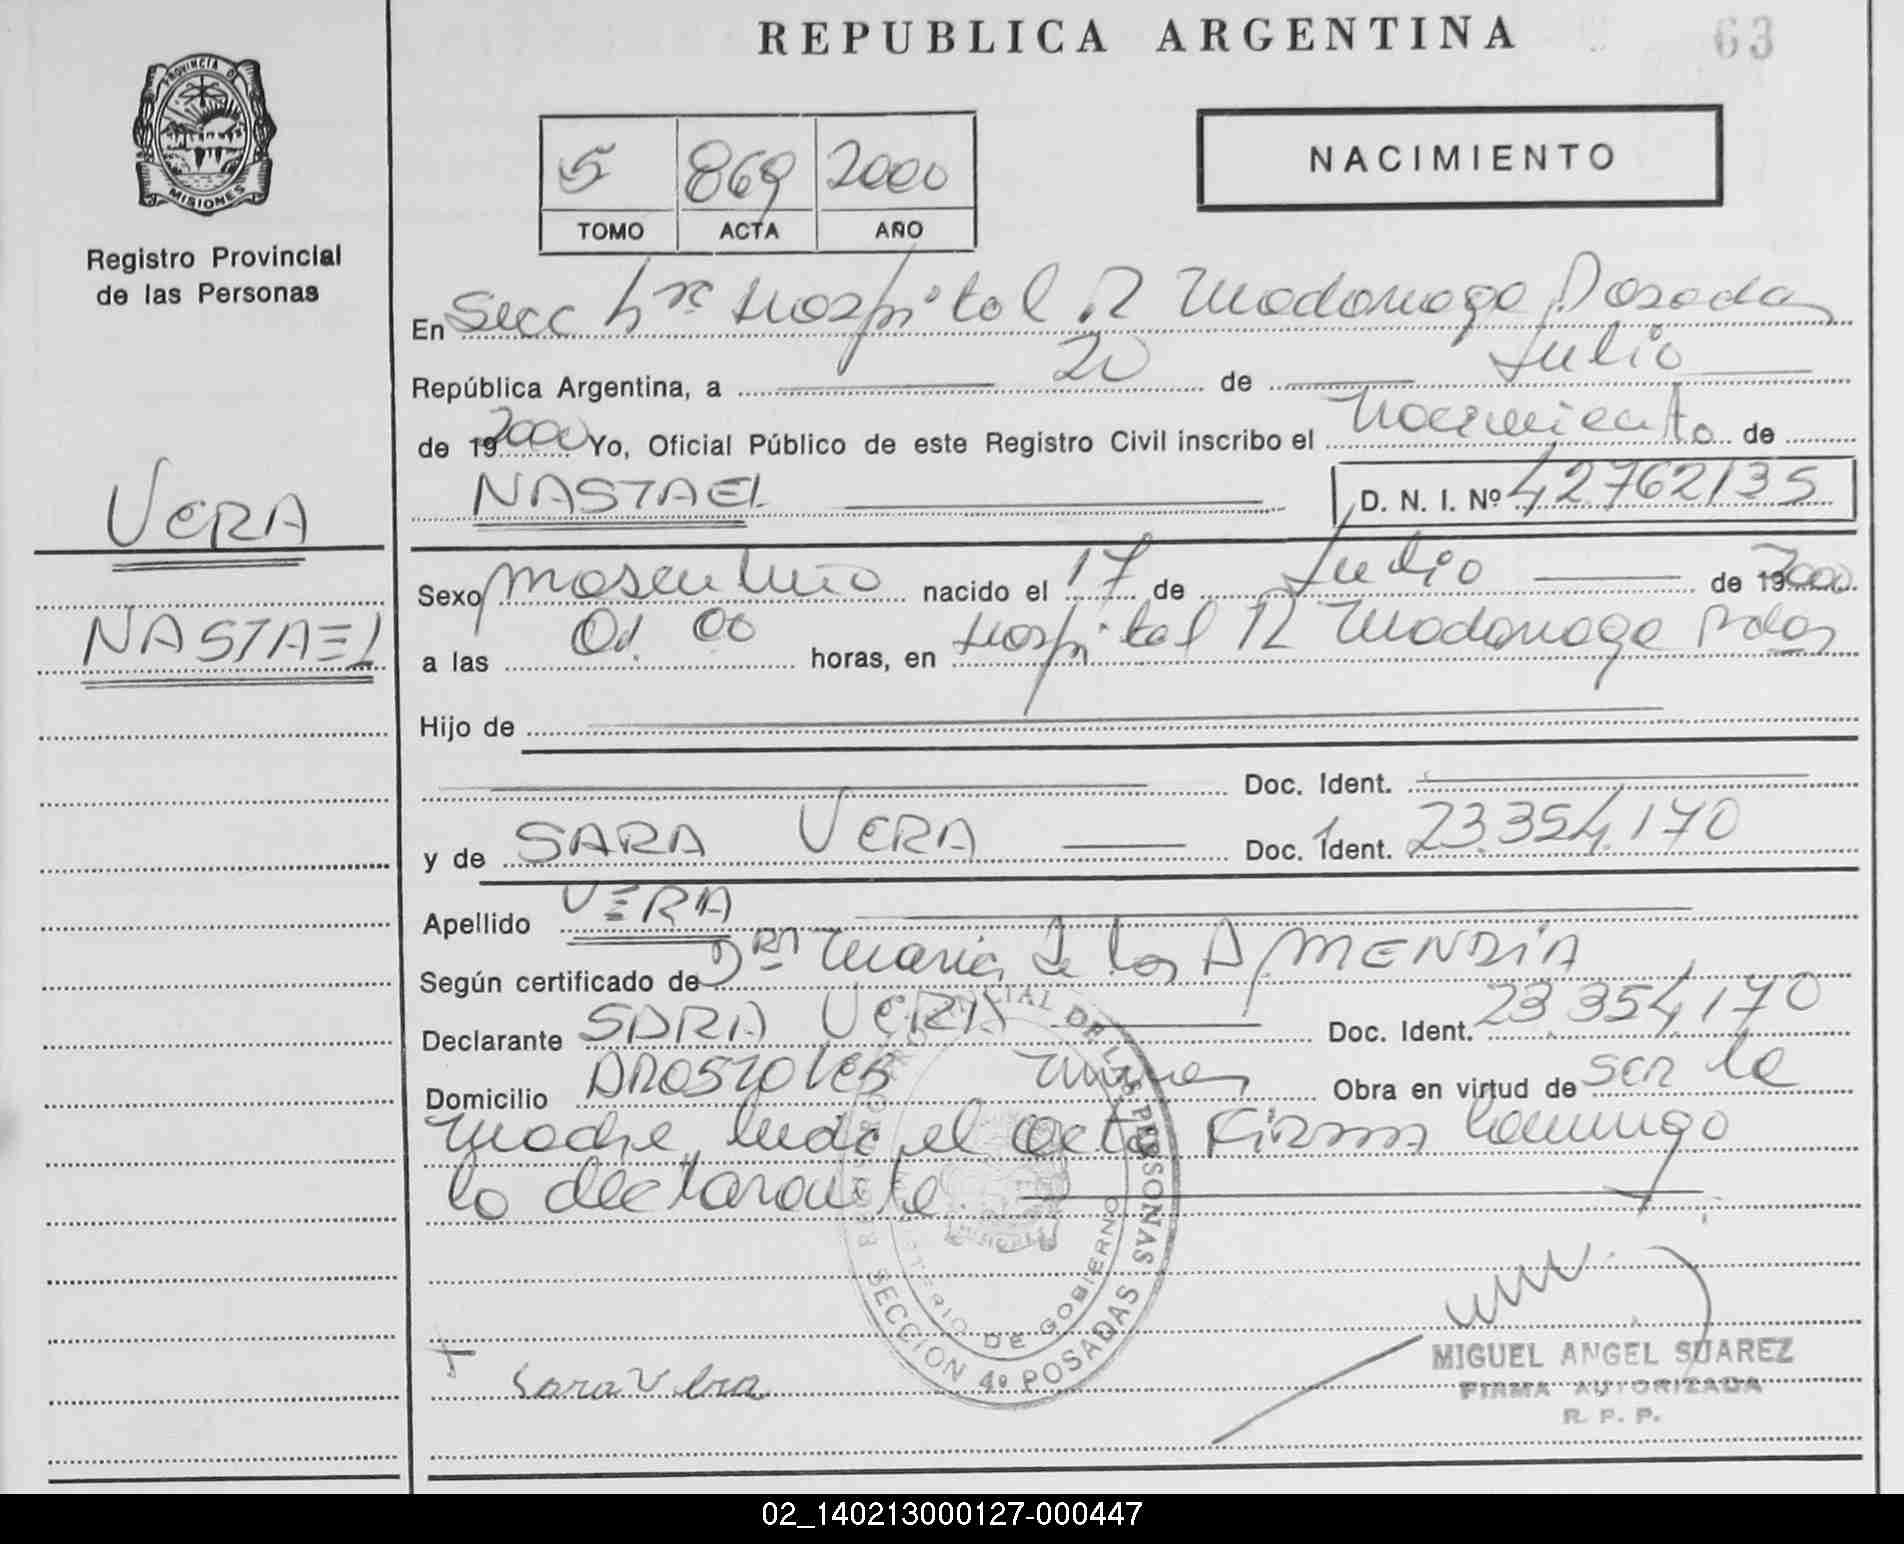 REPUBLICA ARGENTINA
63
PROVINCIA DE
MISIONES
Registro Provincial
de las Personas
5 869 2000
TOMO ACTA AÑO
NACIMIENTO
En Secc Hospital R Madariaga Posadas
República Argentina, a 20 de Julio
de 19 2000 Yo, Oficial Público de este Registro Civil inscribo el Nacimiento de
NASTAEL D. N. I. Nº 42762135
VERA
NASTAEL
Sexo masculino nacido el 17 de Julio de 19 2000
a las 01 00 horas, en Hospital R Madariaga Pdas
Hijo de
Doc. Ident.
y de SARA VERA Doc. Ident. 23.354.170
Apellido VERA
Según certificado de Dra Maria de los A MENDIA
Declarante SARA VERA Doc. Ident. 23 354 170
Domicilio APOSTOLES Obra en virtud de ser la
madre, leida el acta Firma conmigo
la declarante
REGISTRO PROVINCIAL DE LAS PERSONAS
MINISTERIO DE GOBIERNO
SECCION 4º POSADAS
Sara Vera
MIGUEL ANGEL SUAREZ
FIRMA AUTORIZADA
R. P. P.
02_140213000127-000447